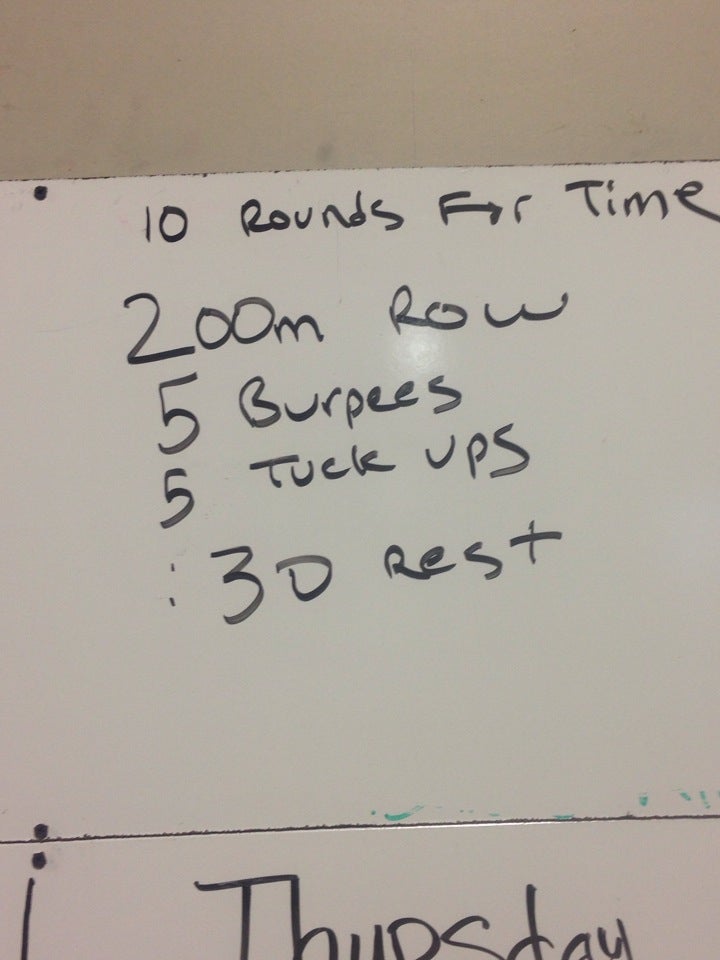 10 Rounds For Time
200m Row
5 Burpees
5 Tuck ups
:30 Rest
Thursday